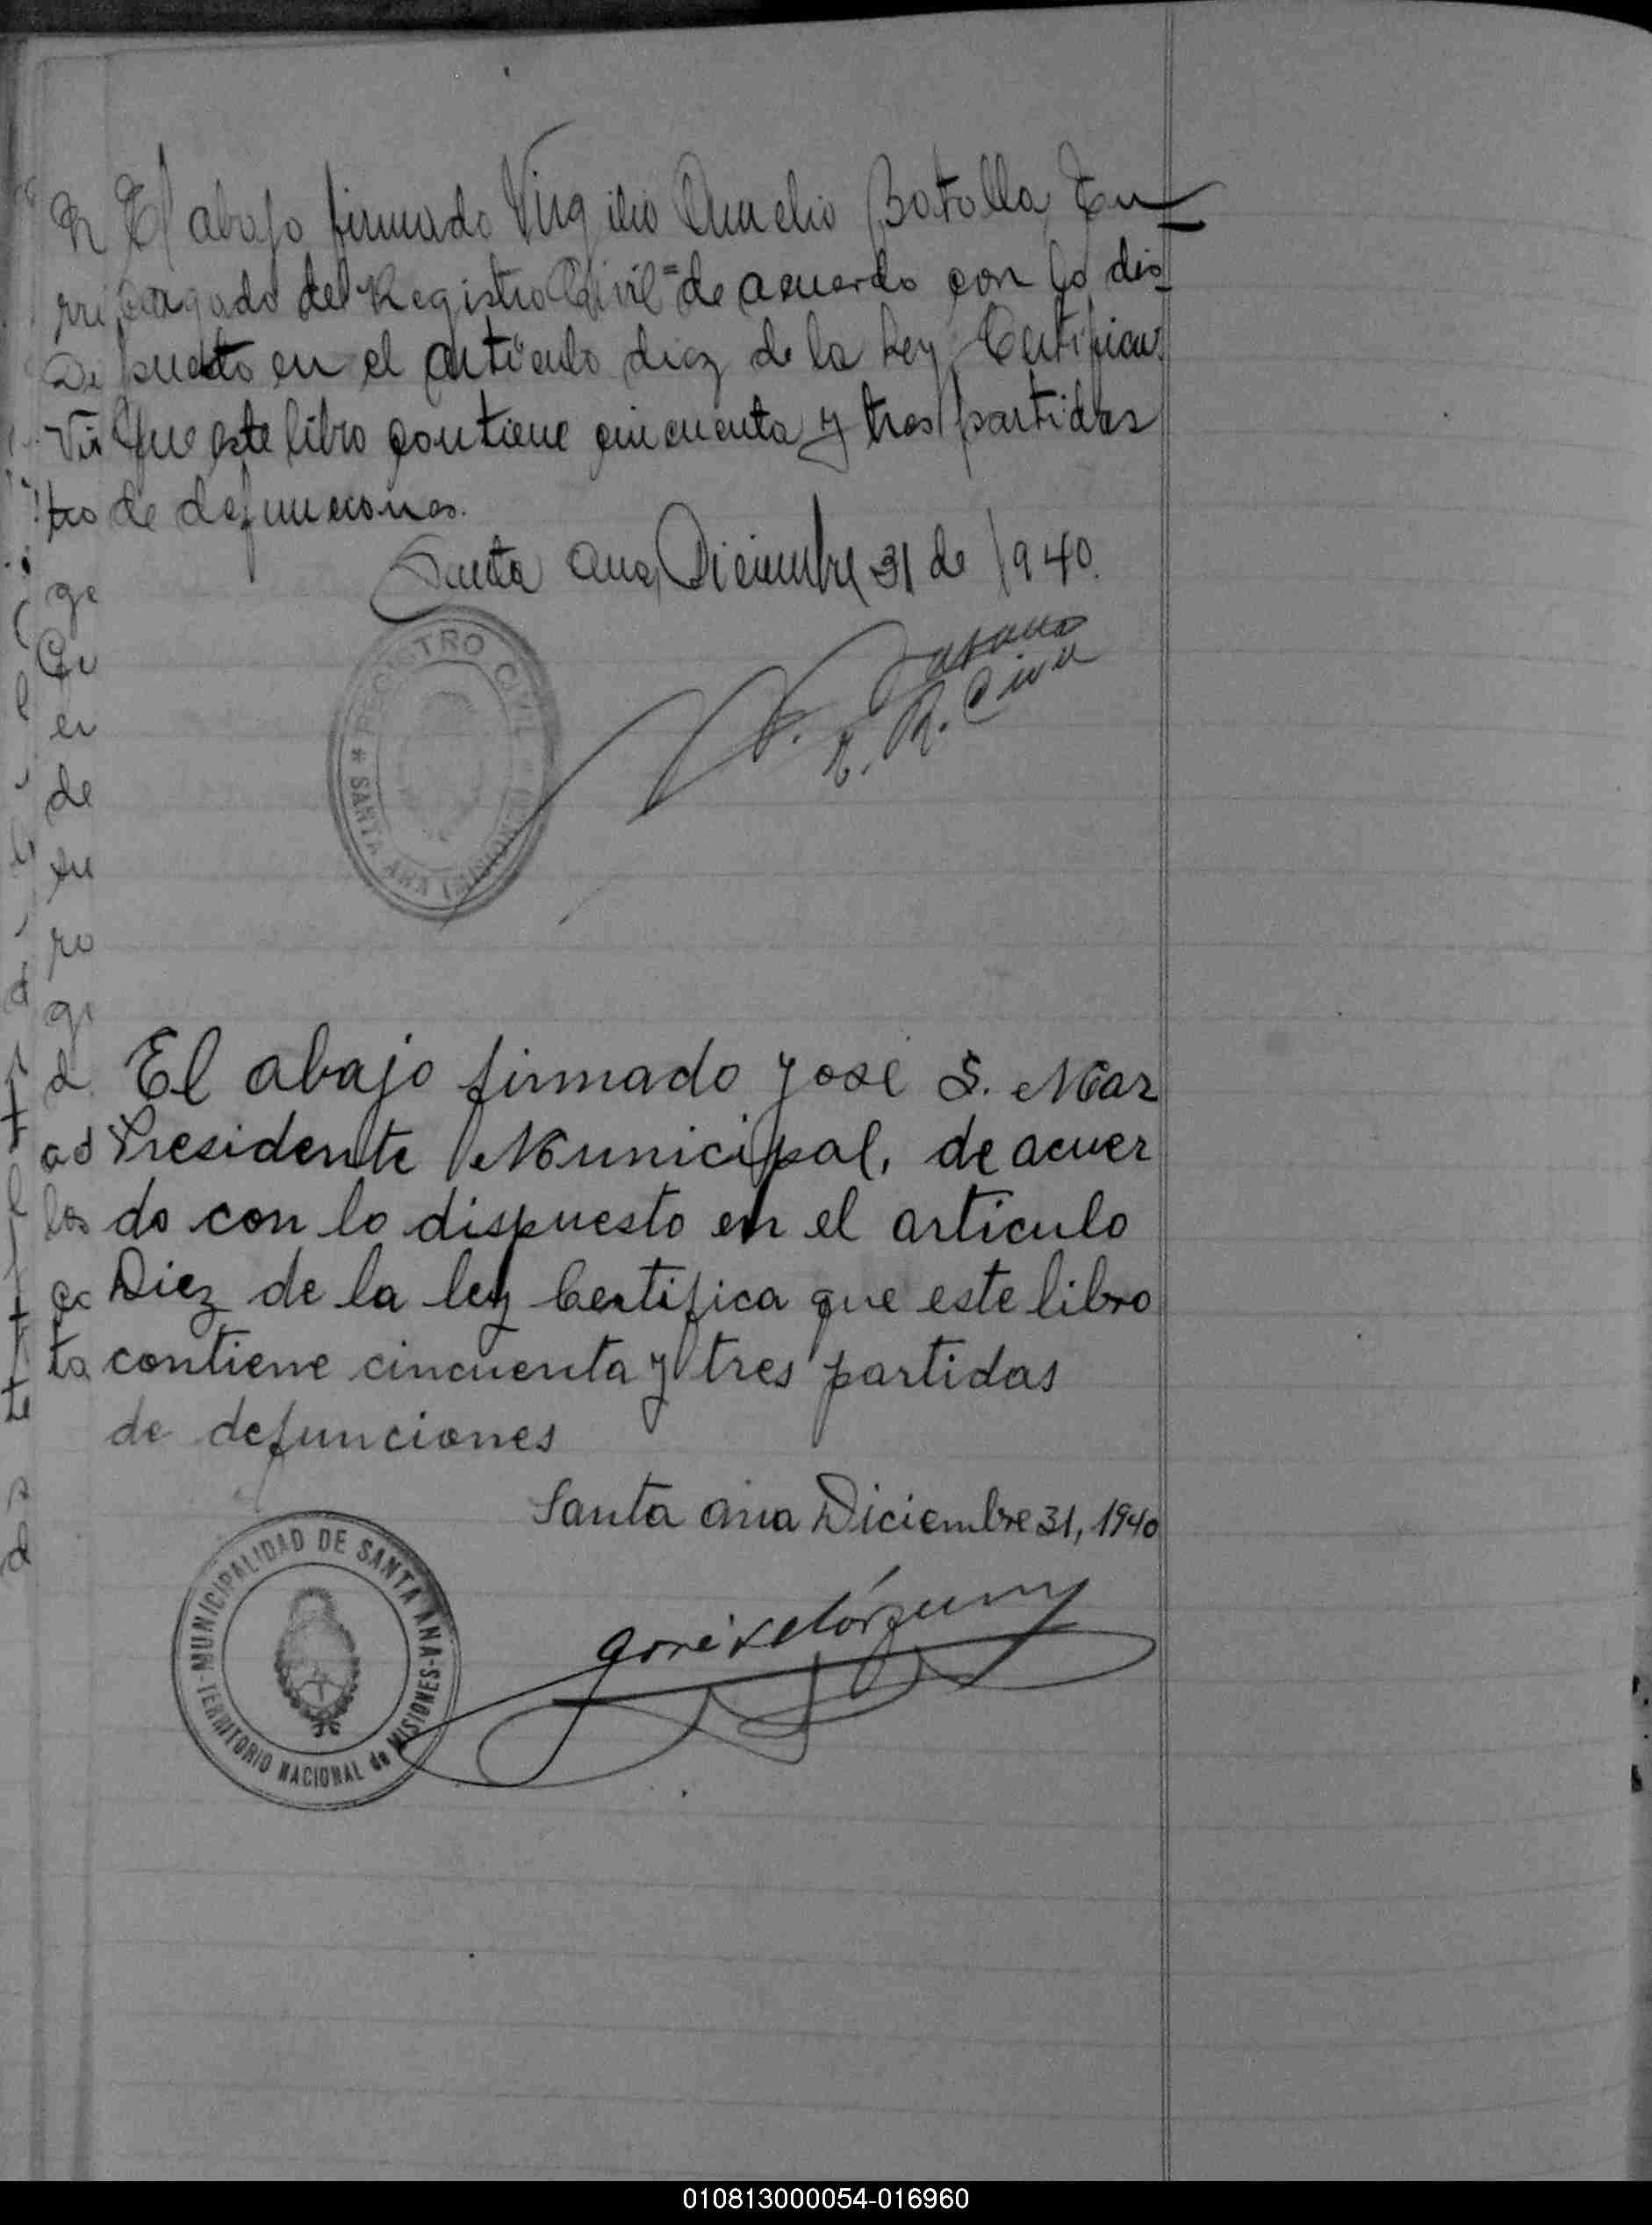 El abajo firmado Virgilio Aurelio Botolla, En-
cargado del Registro Civil = de acuerdo con lo dis-
puesto en el articulo diez de la Ley, Certifica:
Que este libro contiene cincuenta y tres partidas
de defunciones.
Santa Ana, Diciembre 31 de 1940.
REGISTRO CIVIL
* SANTA ANA (MISIONES)
E. R. Civil
El abajo firmado José S. Mar
Presidente Municipal, de acuer
do con lo dispuesto en el articulo
Diez de la ley Certifica que este libro
contiene cincuenta y tres partidas
de defunciones
Santa Ana Diciembre 31, 1940
MUNICIPALIDAD DE SANTA ANA
- TERRITORIO NACIONAL de MISIONES -
ge
en
de
su
ro
d
ad
los
ta
te
d
010813000054-016960